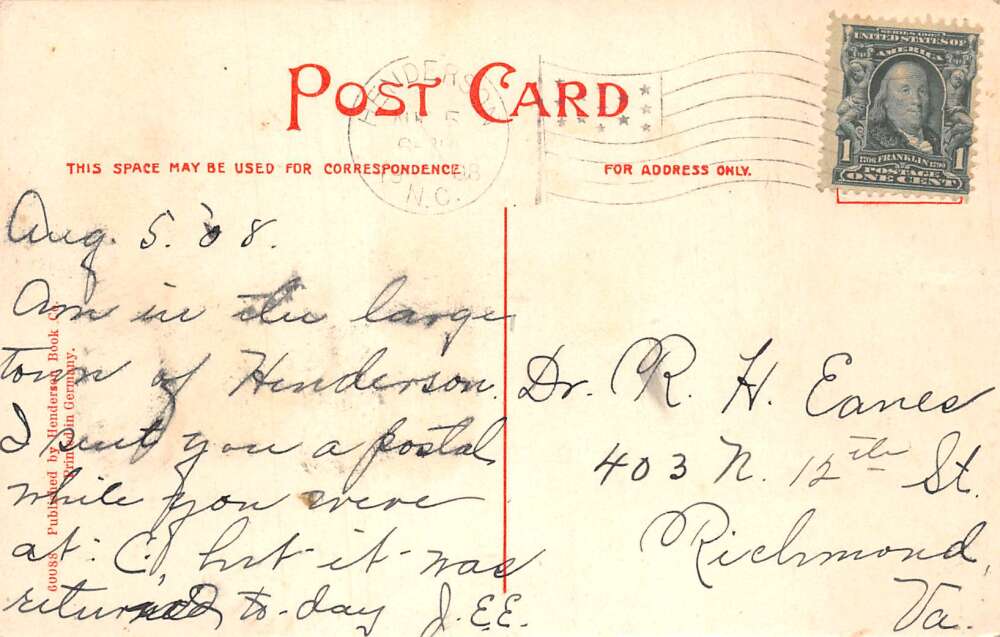 POST CARD
THIS SPACE MAY BE USED FOR CORRESPONDENCE
FOR ADDRESS ONLY.
HENDERSON
5
N.C.
SERIES 1902
UNITED STATES OF
AMERICA
1 1706 FRANKLIN 1790 1
POSTAGE
ONE CENT
Aug. 5. '08.
Am in the large
town of Henderson.
I sent you a postal
while you were
at C, but it was
returned to-day J.E.E.
60088 Published by Henderson Book Co.
Printed in Germany.
Dr. R. H. Eanes
403 N. 12th St.
Richmond,
Va.